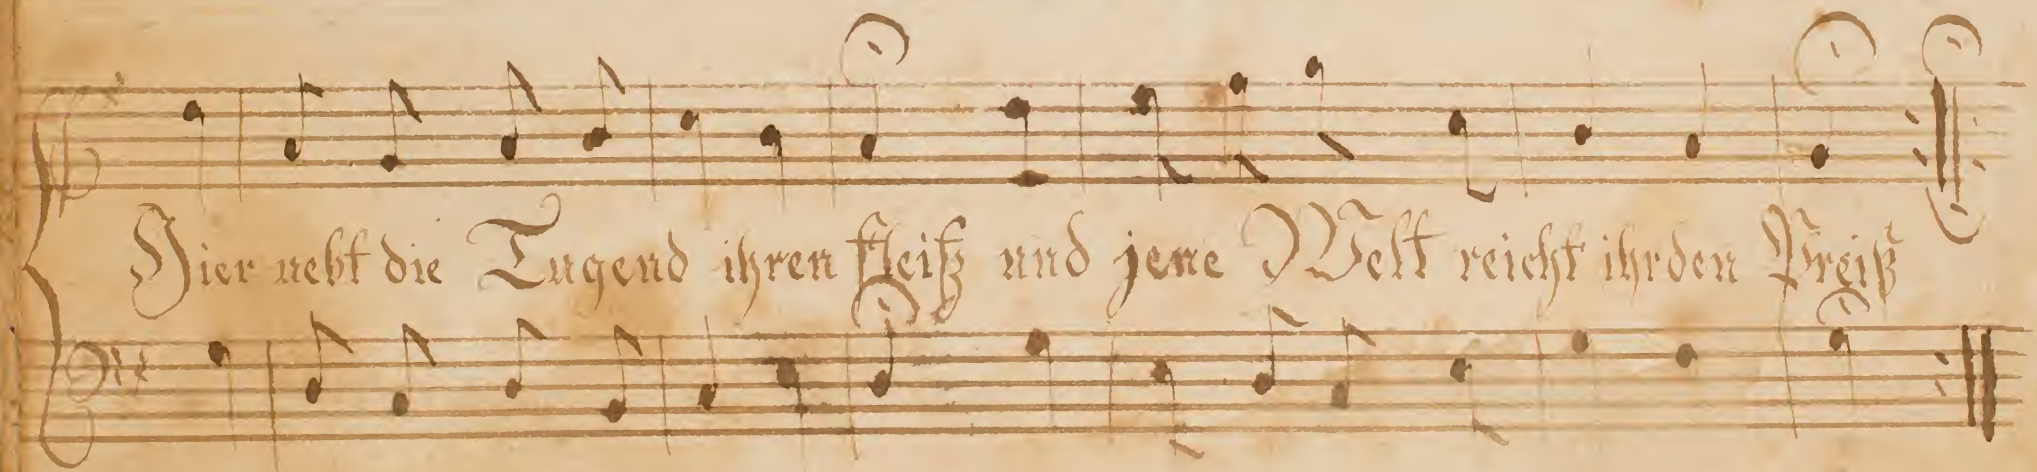 Hier uebt die Tugend ihren fleiß und jene Welt reicht ihr den Preiß